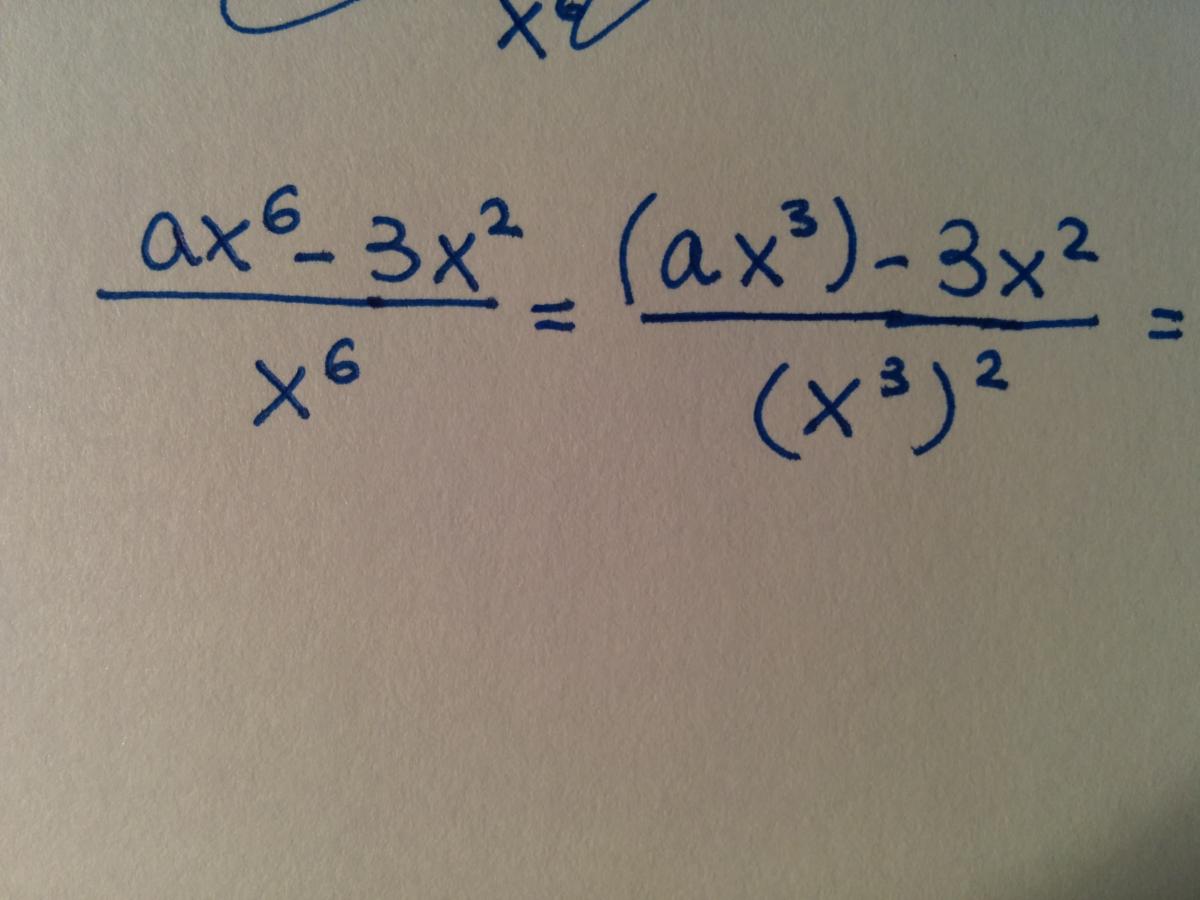 x⁶
ax⁶ - 3x² / x⁶ = (ax³) - 3x² / (x³)² =